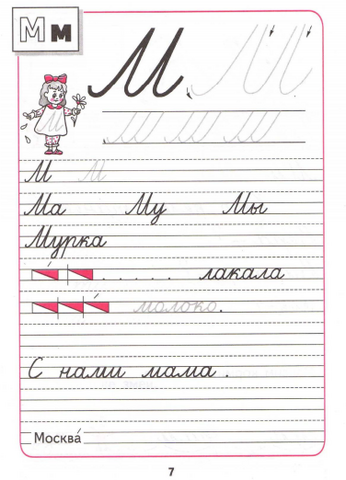 М м
М М
М М М
М М
Ма Му Мы
Мурка
. . . . . лакала
молоко.
С нами мама .
Москва́
7